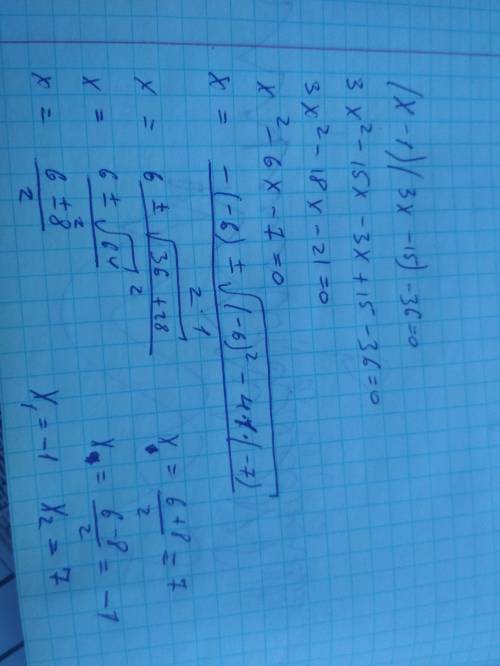 (x - 1)(3x - 15) - 36 = 0
3x² - 15x - 3x + 15 - 36 = 0
3x² - 18x - 21 = 0
x² - 6x - 7 = 0
x = (-(-6) ± √((-6)² - 4·1·(-7))) / (2·1)
x = (6 ± √(36 + 28)) / 2
x = (6 ± √64) / 2
x = (6 ± 8) / 2
x = (6 + 8) / 2 = 7
x = (6 - 8) / 2 = -1
x₁ = -1 x₂ = 7